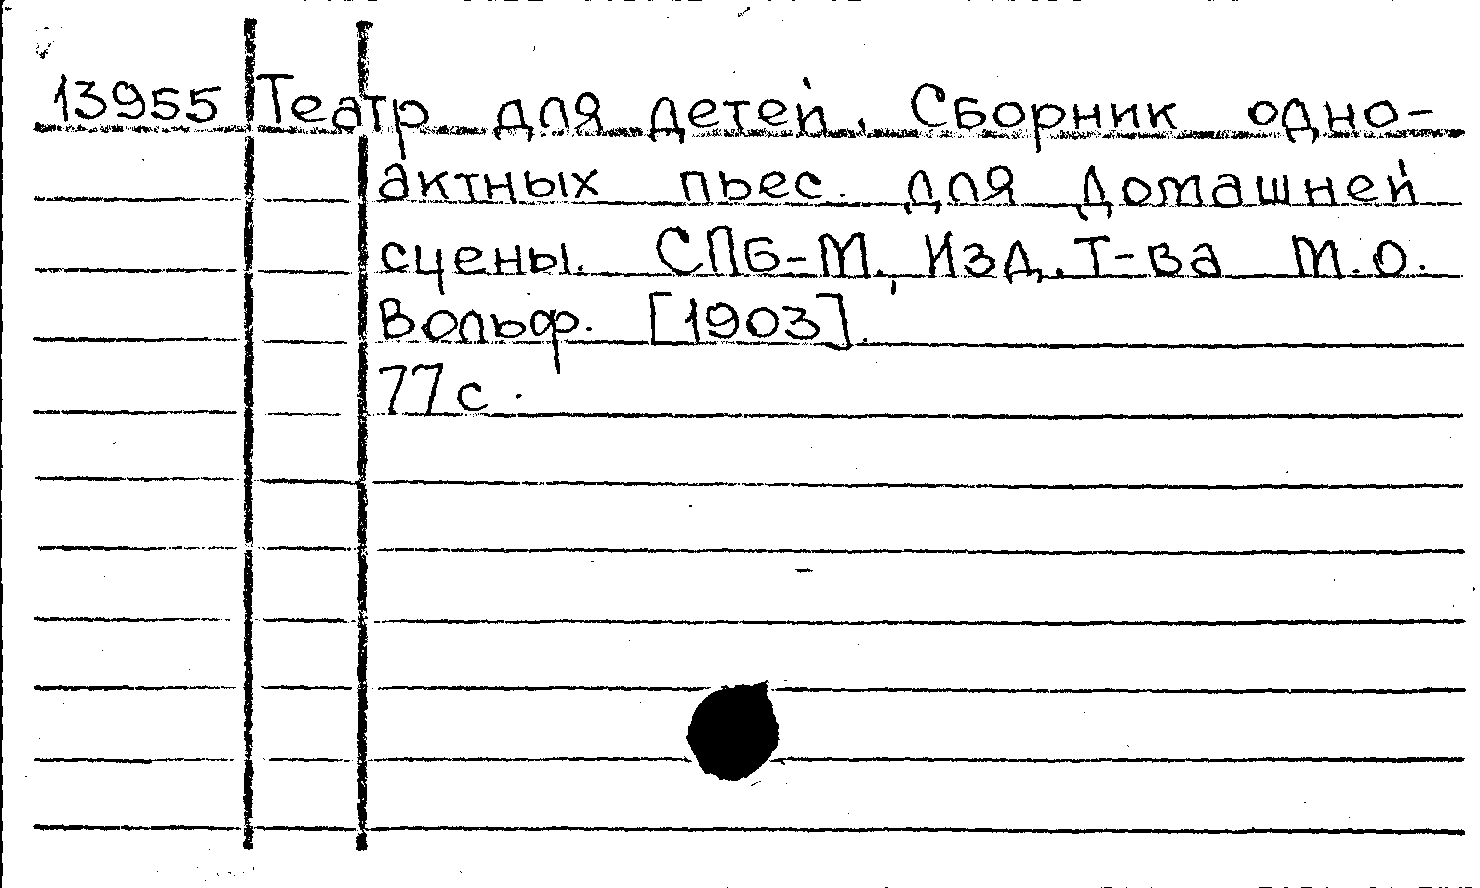 13955 Театр для детей. Сборник одно-
актных пьес. для домашней
сцены. СПБ-М., Изд. Т-ва М.О.
Вольф. [1903].
77с.